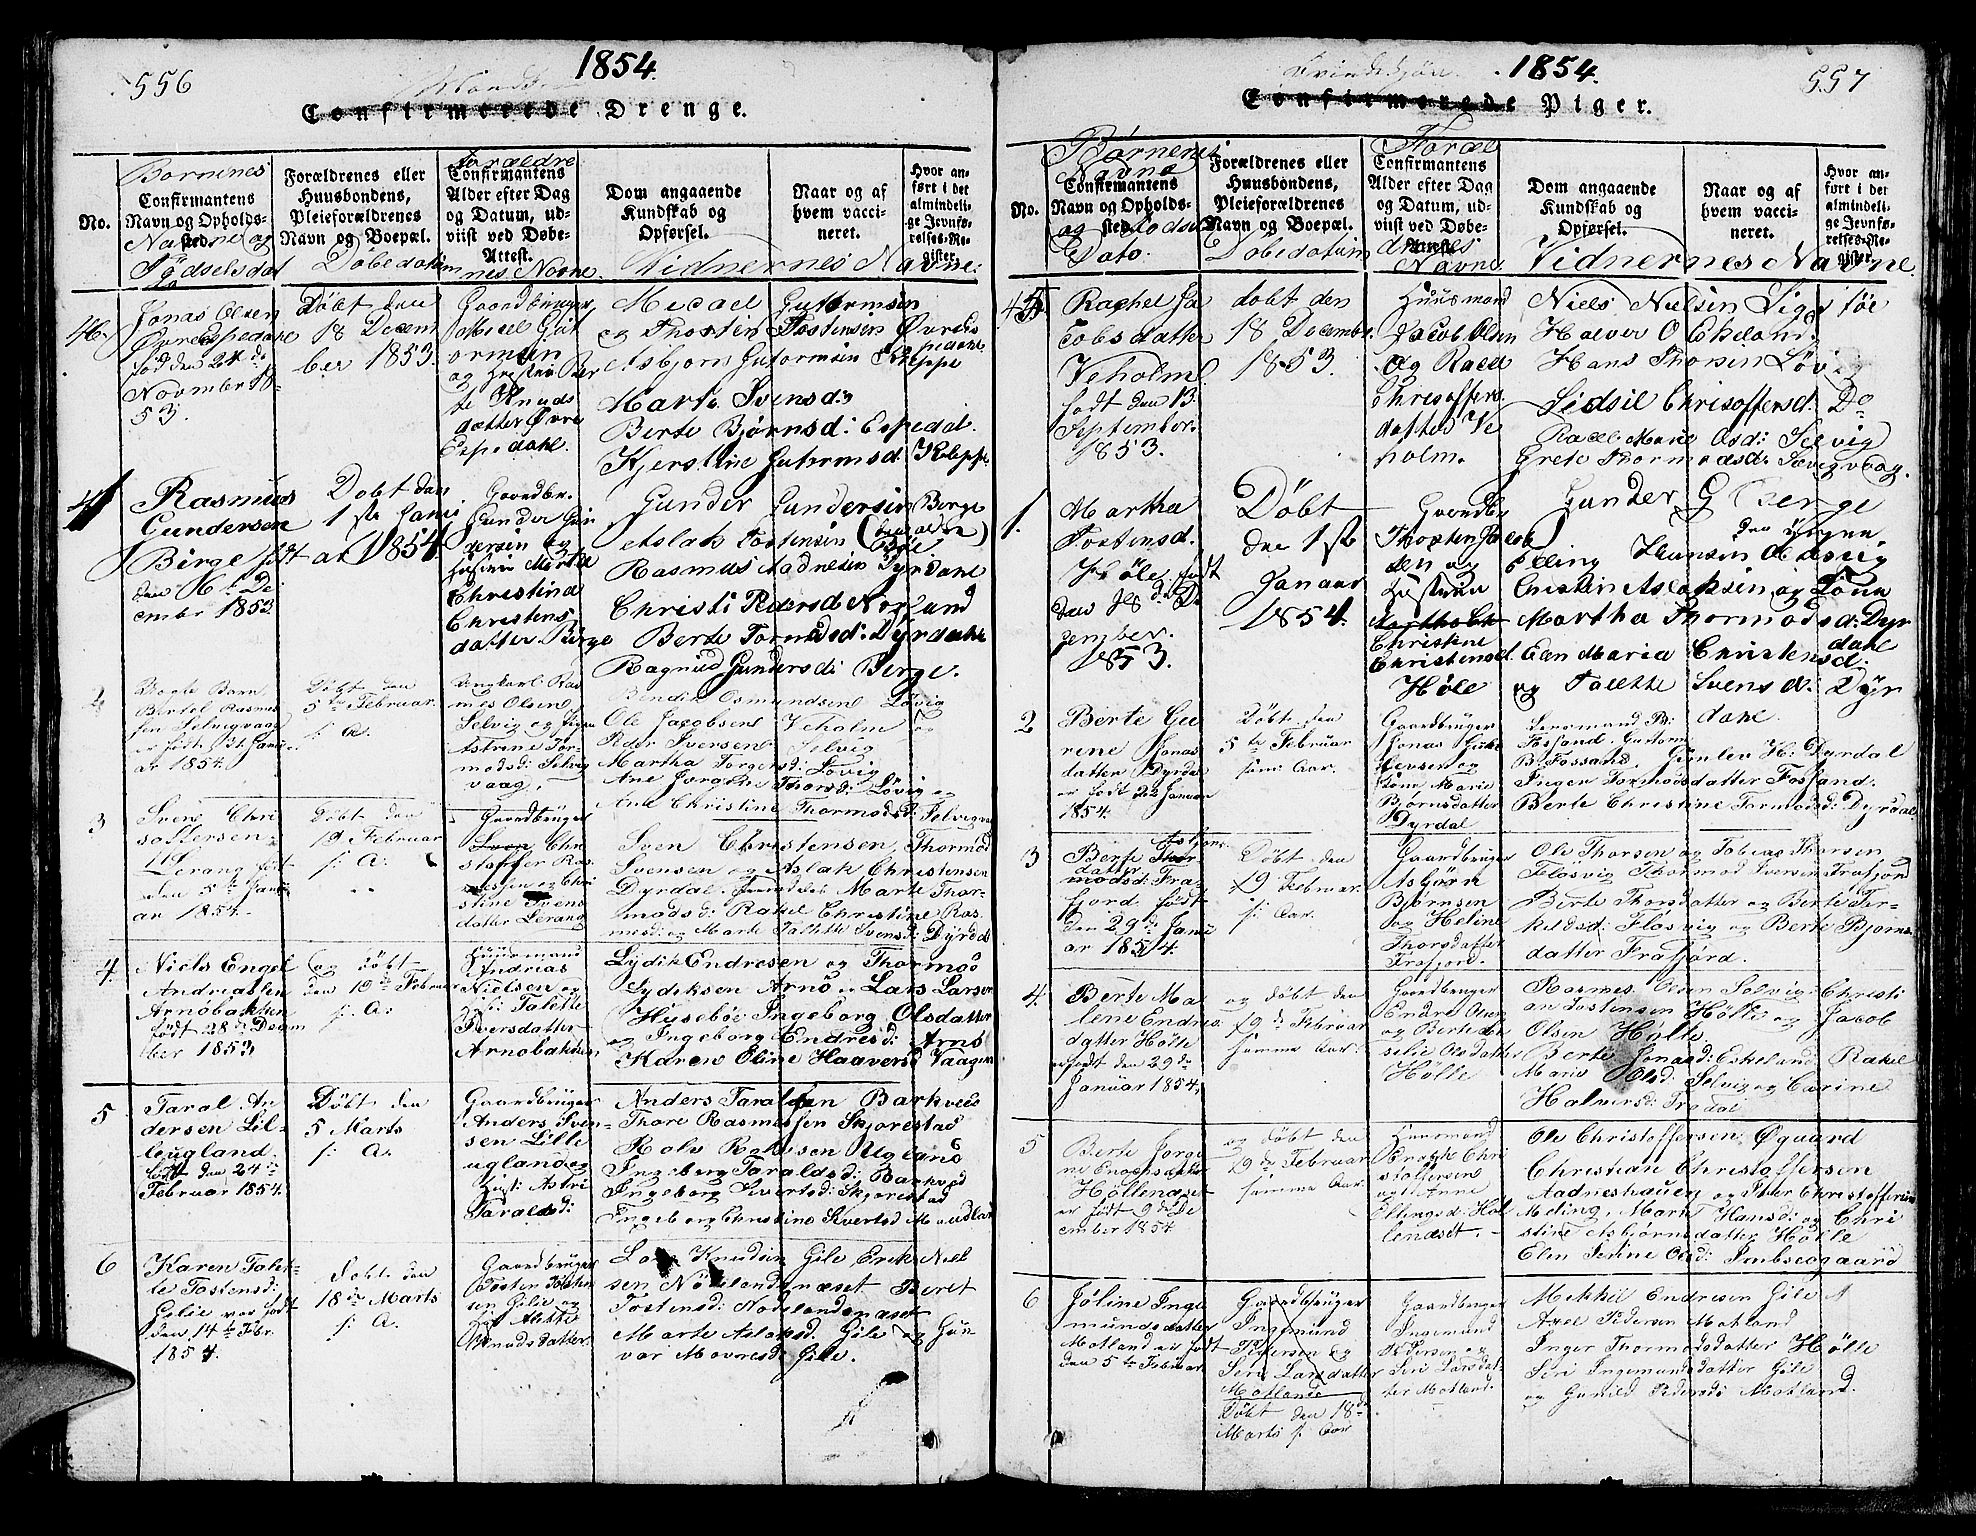 556
1854.
Confirmerede Drenge.
Børnenes
Confirmantens
Navn og Opholds-
sted.
Navne og
Födselsdat
No.
Forældrenes eller
Huusbondens,
Pleieforældrenes
Navn og Boepæl.
Döbedatum
Forældre
Confirmantens
Alder efter Dag
og Datum, ud-
viist ved Døbe-
Attest.
nes Navne.
Dom angaaende
Kundskab og
Opførsel.
Naar og af
hvem vacci-
neret.
Hvor an-
ført i det
almindeli-
ge Jevnfø-
relses-Re-
gister.
Vidnernes Navne.
46.
Jonas Olsen
Øvreespedahl
fød den 24 de
November 18-
53.
Döbt den
18 Decem
ber 1853.
Gaardbruger
Micael Gut
ormsen
og Hustru Ber
te Knuds
datter Øvre
Espedahl.
Micael Guttormsen
og Thosten Tostensen Øvrees
pedahl.
Asbjørn Gutormsen Kleppe
Marte Svensd:
Berte Bjørnsd: Espedal.
Kjerstine Guttormsd: Kleppe
1
Rasmus
Gundersen
Birge født
den 16 de De
cember 1853
Dobt den
1 ste Janu
ar 1854
Gaardbr.
Gunder Gun
dersen og
Hustru Marthe
Christina
Christens
datter Birge
Gunder Gundersen Berge
Aslak Tostensen
Rasmus Aadnesen Dyrdahl
Christi Pedersd Nogland
Berte Tormodsd: Dyrdahl
Ragnild Gundersd: Berge.
2
Uægte Barn
Bertel Rasmus
sen Selvigvaag
er født 31. Janu
ar 1854.
Döbt den
5 te Februar.
s. A.
Ungkarl: Ras
mus Olsen
Selvig og Pigen
Astrine Tor-
modsd: Selvig
vaag.
Bendik Osmundsen Løvig
Ole Jacobsen Veholm og
Peder Iversen Selvig
Martha Torgersd: Løvig
Ane Thorsd: Løvig og
Ane Christine Thormodsd: Selvigv
3
Svend Chri
soffersen
Lerang født
den 5 te Janu
ar 1854.
Döbt den
19 Februar
s. A.
Gaardbruger
Chri
stoffer Ras
mussen og Chri
stine Svens
datter Lerang
Sven Christensen, Thormod
Svensen og Aslak Christensen
Dyrdal. Marte Thor-
modsd: Rakel Christine Ras
musd: og Marte Talette Svensd: Dyrdal
4
Niels Engel
Andreassen
Arnøbakken
født 28 de Decem
ber 1853
og Døbt
den 19 de Februar
s. A.
Huusmand
Andrias
Nielsen og
Hu: Talette
Iversdatter
Arnøbakken
Lydik Endresen og Thormod
Lydiksen Arnö. Lars Larsen
Husebøe Ingeborg Olsdatter
og Ingeborg Endresd: Arnö
Karen Oline Haaversd Vaagen
5
Taral An
dersen Lil-
leugland.
født den 24 de
Februar 1854.
Døbt den
5 Marts
s. A.
Gaardbruger
Anders Sven-
sen Lille
ugland og
Hust: Astri
Taralds d:
Anders Taraldsen Barkved
Thore Rasmussen Skjørestad
Rolv Rolvsen Ugland
Ingeborg Taraldsd: Barkved
Ingeborg Sivertsd: Skjørestad
Ingeborg Christine Sivertsd Maudland
6
Karen Talet-
te Tostensd:
Gilie var født
den 14 de Febr.
1854.
Døbt den
18 de Marts
s. A.
Gaardbruger
Tosten Tosten
sen Gilie og
Hu: Alette
Knudsdatter
Knudsen Gile Erik Niel
sen Nödlandsnæset Beret
Tostensd: Nodslandsnæset
Marte Aslaksd. Gile og Gun
vor Mavnesd: Gile.
Qvindekjøn.
1854.
557
Confirmerede Piger.
Børnenes
Navne
No.
Confirmantens
Navn og Opholds-
sted
og Födsels
Dato.
Forældrenes eller
Huusbondens,
Pleieforældrenes
Navn og Boepæl.
Döbedatum
Foræl
Confirmantens
Alder efter Dag
og Datum, ud-
viist ved Døbe-
Attest.
drenes
Navne
Dom angaaende
Kundskab og
Opførsel.
Naar og af
hvem vacci-
neret.
Hvor an-
ført i det
almindeli-
ge Jevnfø-
relses-Re-
gister.
Vidnernes Navne.
45
Rachel Ja
cobsdatter
Veholm
født den 13
September.
1853.
dobt den
18 Decembr.
1853.
Huusmand
Jacob Olsen
og Rachel
Chrisoffers
datter Ve
holm.
Niels Nielsen
Halvor O Eikeland
Hans Thorsen Løvig
Sidsil Chrisoffersd. Do
Racel Marie Olsd: Selvig
Grete Thormodsd: Sævigvaag.
1.
Martha
Tostensd.
Høle født
den 18 de De
zember.
1853.
Döbt
den 1 ste
Januar
1854.
Gaardbr
Thosten Jacob
sen og
Hustru
Christine
Christensd
Høle
Gunder G Berge
den yngre.
Elling Hansen Adsvig
Christen Aslaksen og Lone
Martha Thormodsd: Dyr
dahl
Elen Maria Christensd:
og Talette Svensd: Dyr
dahl.
2
Berte Gu
rine Jonas
datter Dyrdal
er født den Januar
1854.
Döbt den
5 te Februar
samme Aar.
Gaardbruger
Jonas Gun
levsen og
Lone Marie
Bjørnsdatter
Dyrdal
Lensmand B:
Fossand. Guttorm
B. Fossand. Gunlev H. Dyrdal
Inger Tormodsdatter Fossand.
Berte Christine Tormodsd: Dyrdal
3
Asbjøns
datter
Berte
modsd: Fra
fjord født
den 29 de Janu
ar 1854.
Döbt den
19 Februar.
s. Aar.
Gaardbruger
Asbjørn
Bjørnsen
og Heline
Thorsdatter
Frafjord.
Ole Thorsen og Tobias Thorsen
Fløsvig Thormod Iversen Frafjord
Berte Thorsdatter og Berte Tor-
keldsd: Fløsvig og Berte Bjørns
datter Frafjord.
4
Berte Ma
lene Endres
datter Hølle
er født den 29 de
Januar 1854.
og døbt den
19 de Februar
samme Aar.
Gaardbruger
Endre Olsen
og Berte
Olsdatter
Hølle
Rasmus Olsen Selvig: Christi
an Tostensen Hölle og Jacob
Olsen Hølle.
Berte Jonasd: Eskeland Rakel
Marie Olsd: Selvig og Carine
Halversd: Frødal
5
Berte Jorgi
ne Enoksdatter
Höllendset
er født 9 de De
cember 1854
og døbt den
19 de Februar
samme Aar.
Huusmand
Enok Chri
stoffersen
og Anne
Ellingsd: Höl
lendset.
Ole Christoffersen, Øgaard
Christian Christoffersen
Aadneshauen og Peter Christoffersen
Meling, Marte Hansd: og Chri
stine Asbjørnsdatter Hölle
Elen Serine Olsd: Imbseogaard
6
Joline Inge
mundsdatter
Motland er født
den 5 te Februar
Gaardbruger
Ingemund
Pedersen og
Seri Larsdatter
Motland
Döbt den 18 de
Marts s. Aar
Gaardbruger
Ingemund
Pedersen og
Seri Larsdat-
ter Motland.
Mekkel Endresen Gile
Axel Pedersen Motland
Inger Thormodsdatter Hölle
Seri Ingemundsdatter Gile
og Gunild Pedersd: Motland.